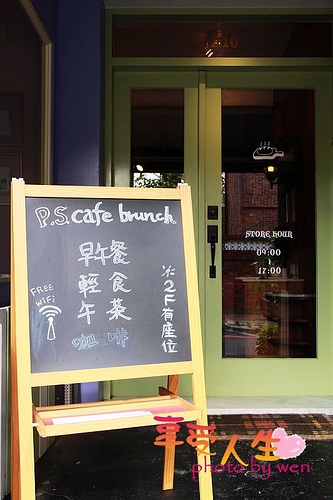 1410
P.S. cafe brunch
早午餐
輕食
午茶
咖啡
FREE
WiFi
※2F有座位
STORE HOUR
09:00
17:00
享受人生
photo by wen